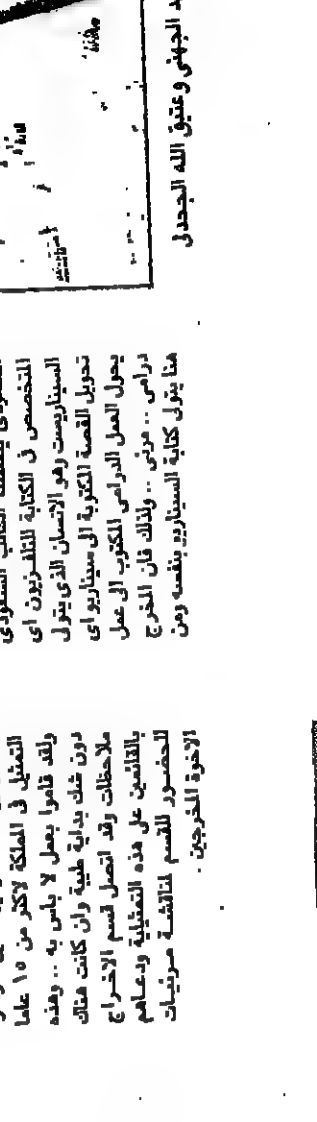 د الجهنى وعتيق الله الجحدلى
المتخصص فى الكتابة للتلفزيون اى
السيناريست وهو الانسان الذى يتولى
تحويل القصة المكتوبة الى سيناريو اى
يحول العمل الدرامى المكتوب الى عمل
درامى .. مرئى .. ولذلك فان المخرج
هنا يتولى كتابة السيناريو بنفسه ومن
التمثيل فى المملكة لاكثر من ١٥ عاما
ولقد قاموا بعمل لا باس به .. وهذه
دون شك بداية طيبة وان كانت هناك
ملاحظات وقد اتصل قسم الاخراج
بالقائمين على هذه التمثيلية ودعاهم
للحضور للقسم لمناقشة مرئيات
الاخوة المخرجين .